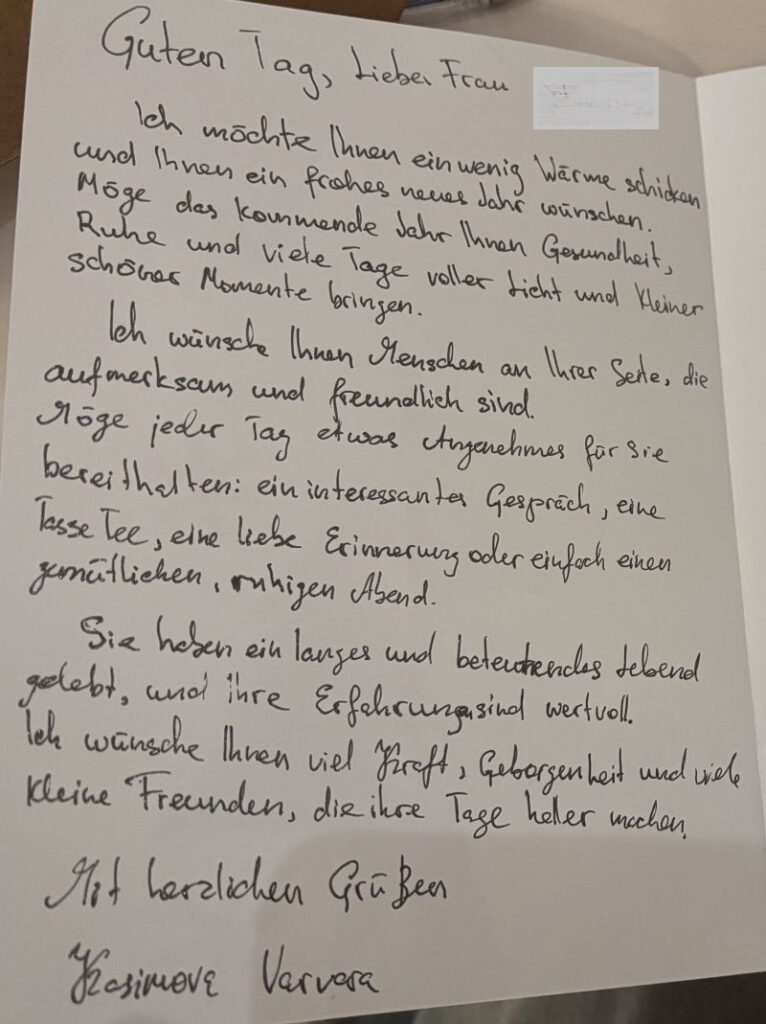 Guten Tag, Liebe Frau
Ich möchte Ihnen ein wenig Wärme schicken
und Ihnen ein frohes neues Jahr wünschen.
Möge das kommende Jahr Ihnen Gesundheit,
Ruhe und viele Tage voller Licht und kleiner
schöner Momente bringen.
Ich wünsche Ihnen Menschen an Ihrer Seite, die
aufmerksam und freundlich sind.
Möge jeder Tag etwas Angenehmes für Sie
bereithalten: ein interessantes Gespräch, eine
Tasse Tee, eine liebe Erinnerung oder einfach einen
gemütlichen, ruhigen Abend.
Sie haben ein langes und lebend
gelebt, und ihre Erfahrungen sind wertvoll.
Ich wünsche Ihnen viel Kraft, Geborgenheit und viele
kleine Freunden, die ihre Tage heller machen.
Mit herzlichen Grüßen
Kasimova Varvara